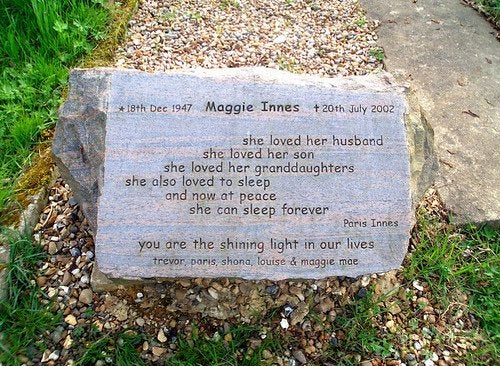 *18th Dec 1947 Maggie Innes ✝20th July 2002
she loved her husband
she loved her son
she loved her granddaughters
she also loved to sleep
and now at peace
she can sleep forever
Paris Innes
you are the shining light in our lives
trevor, paris, shona, louise & maggie mae